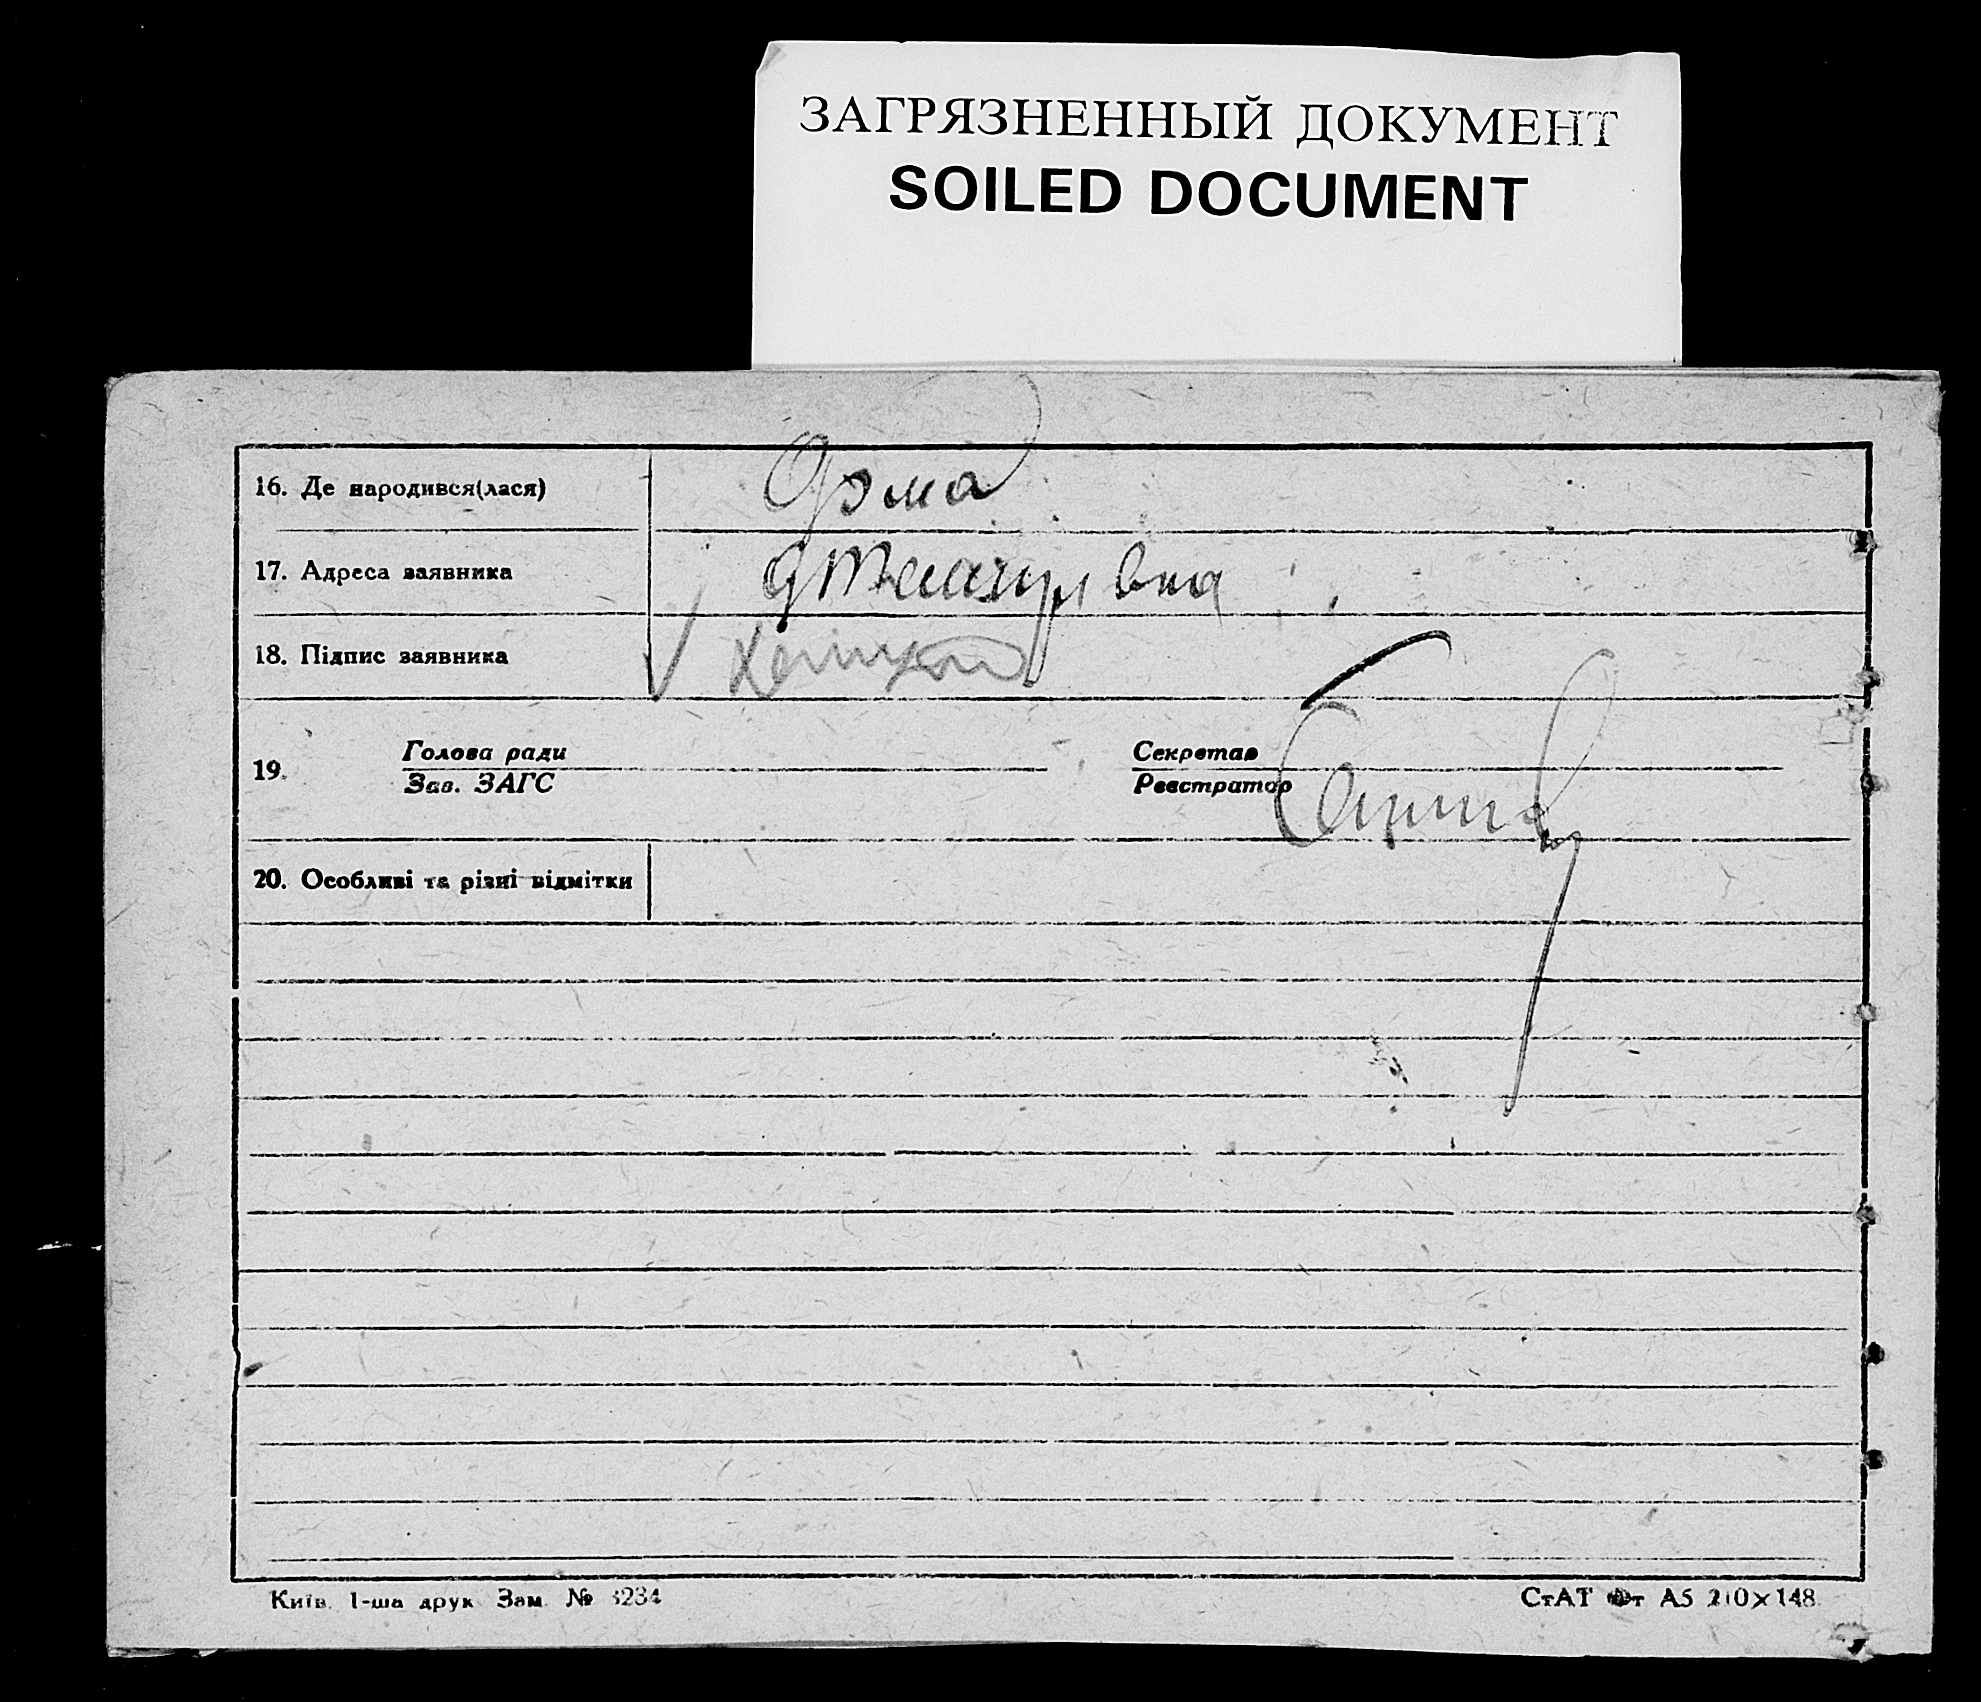 ЗАГРЯЗНЕННЫЙ ДОКУМЕНТ
SOILED DOCUMENT
16. Де народився(лася)
17. Адреса заявника
18. Підпис заявника
19. Голова ради Секретар
Зав. ЗАГС Реєстратор
20. Особливі та різні відмітки
Київ. 1-ша друк. Зам. № 3234 СтАТ Фт А5 210×148